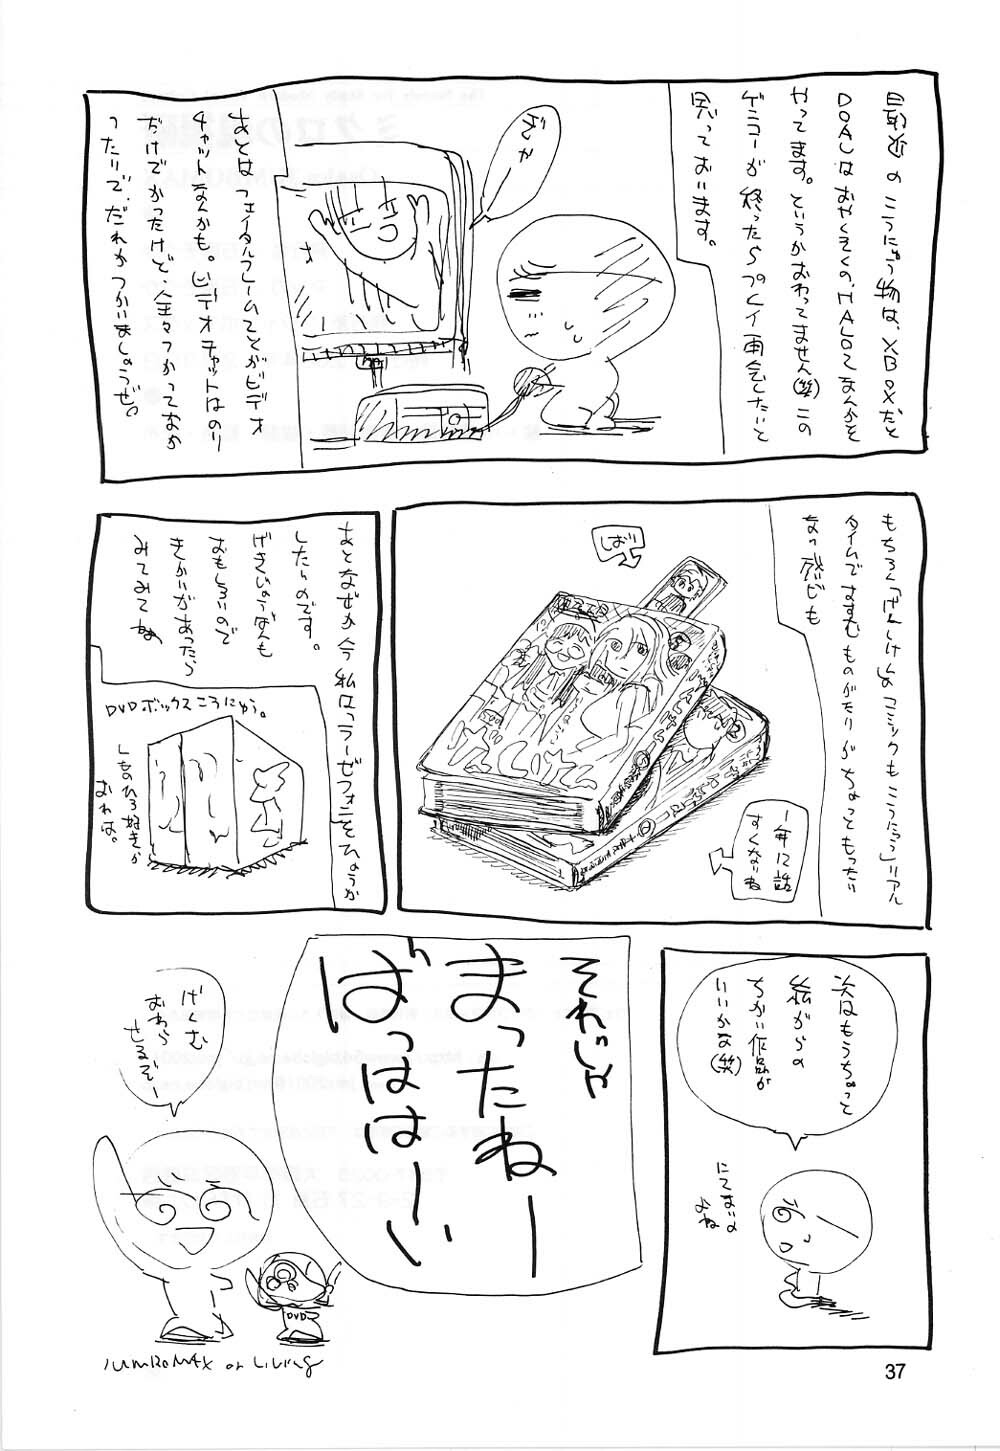 最近のこうにゅう物は、XBOXだと
DOAUはおやくそくの、HALOってなんかを
やってます。というかおわってません(笑)この
ゲンコーが終ったらプレイ再会したいと
思っております。
ざんか
あとはフェイタルフレームってとかビデオ
チャットなんかも。ビデオチャットはのり
だけでかったけど、全々つかっておか
ったりで、だれかつかいましょうぜ。
もちろん「げんしけん」のコミックもこうにゅう」リアル
タイムですすむものがたりがちょっともったい
ない感じも
しばり
1年12話
すくないね
あとなぜか今私はラーゼフォンをひょうか
したいのです。
げきじょうばんも
おもしろいので
きかいがあったら
みてみてね
DVDボックスこうにゅう。
しものひろ好きか
おれは。
次はもうちょっと
絵がらの
ちかい作品が
いいかな(笑)
にてないの
よね
それじゃ
まったねー
ばっははーい
げーむ
おわら
せるぞー
DVD
JUMROMAX or Living
37